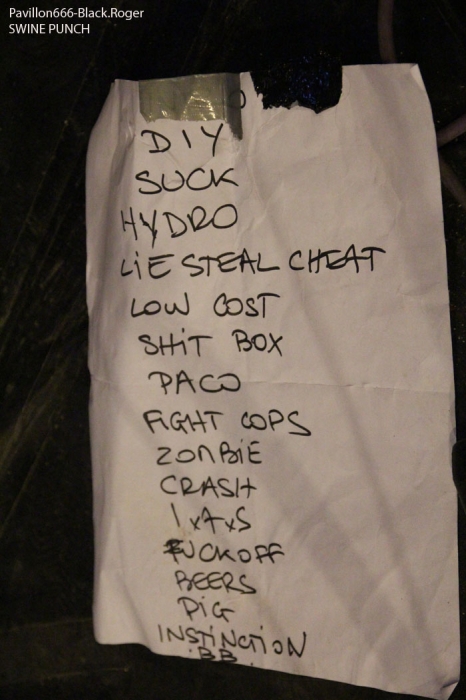 Pavillon666-Black.Roger
SWINE PUNCH
DIY
SUCK
HYDRO
LiE STEAL CHEAT
LOW COST
SHiT BOX
PACO
FIGHT COPS
ZOMBiE
CRASH
1xAxS
FUCK OFF
BEERS
PiG
INSTiNCTiON